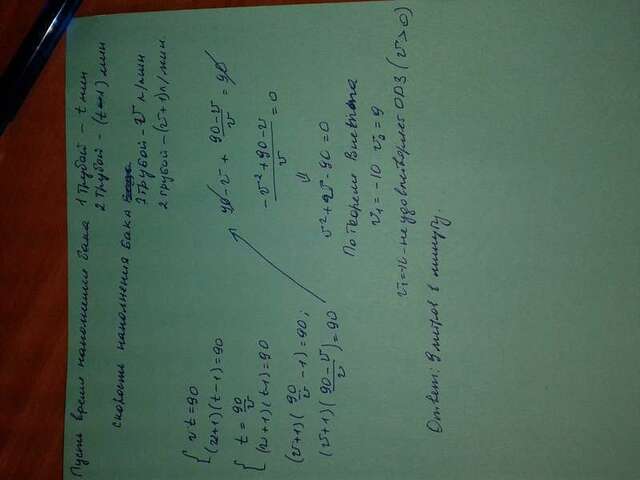 Пусть время наполнения бака 1 трубой - t мин
2 трубой - (t-1) мин
скорость наполнения бака 1 трубой - v л/мин
2 трубой - (v+1) л/мин.
{ vt=90
(v+1)(t-1)=90
{ t=90/v
(v+1)(t-1)=90
(v+1)(90/v -1)=90;
(v+1)(90-v/v)=90
90-v+ 90-v/v =90
-v²+90-v/v =0
⇓
v²+v-90=0
По теореме Виета
v₁=-10 v₂=9
v=-10-не удовлетворяет ОДЗ (v>0)
Ответ: 9 литров в минуту.